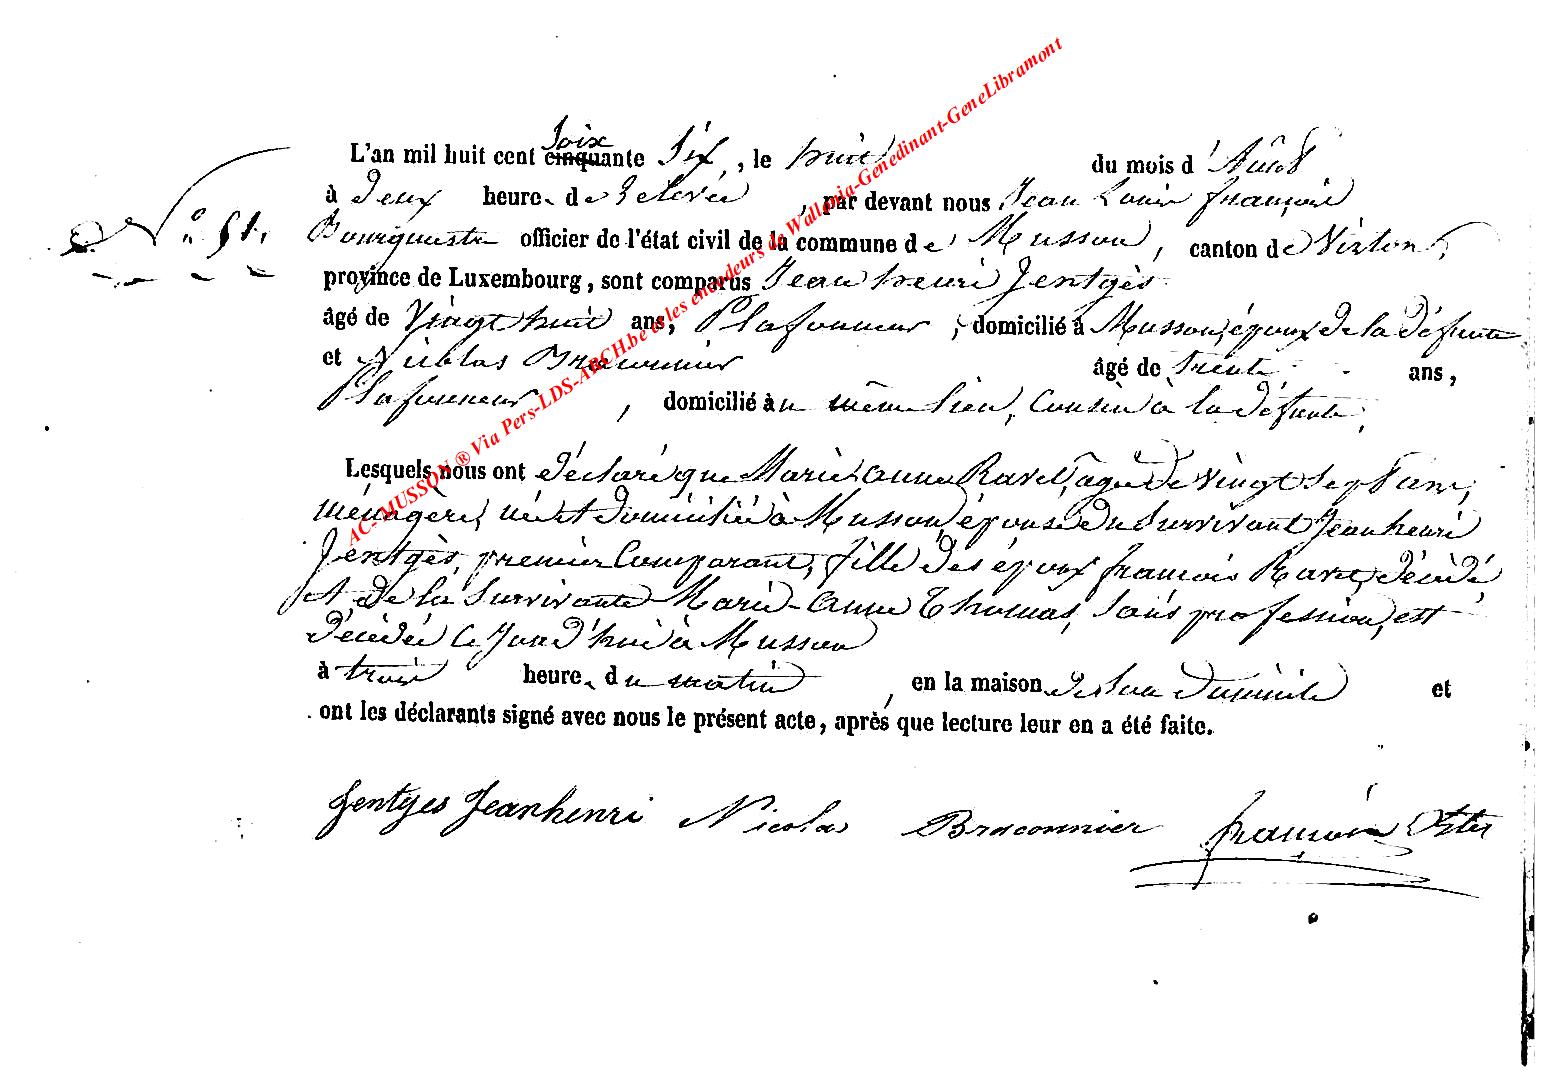 L'an mil huit cent cinquante Soix Six, le huit du mois d'Août
à Deux heure. de Relevée, par devant nous Jean Louis françois
Bourgmestre officier de l'état civil de la commune de Musson, canton de Virton,
N° 51.
province de Luxembourg, sont comparus Jean henri Jentgès
âgé de Vingt huit ans, Plafonneur, domicilié à Musson, époux de la défunte
et Nicolas Braconnier âgé de trente ans,
Plafonneur, domicilié au même lieu, Cousin à la défunte,
Lesquels nous ont déclaré que Marie-anne Ravet, âgée de vingt Sept ans,
ménagère, née et domiciliée à Musson, épouse du Survivant Jean henri
Jentgès, premier Comparant, fille des époux françois Ravet, décédé
et de la Survivante Marie-anne Thomas, Sans profession, est
décédée ce Jourd'hui à Musson
à trois heure. du matin, en la maison de Son domicile et
ont les déclarants signé avec nous le présent acte, après que lecture leur en a été faite.
Jentges Jeanhenri Nicolas Braconnier françois
AC-MUSSON ® Via Pers-LDS-ARCH.be et les encodeurs de Wallonia-Genedinant-GeneLibramont